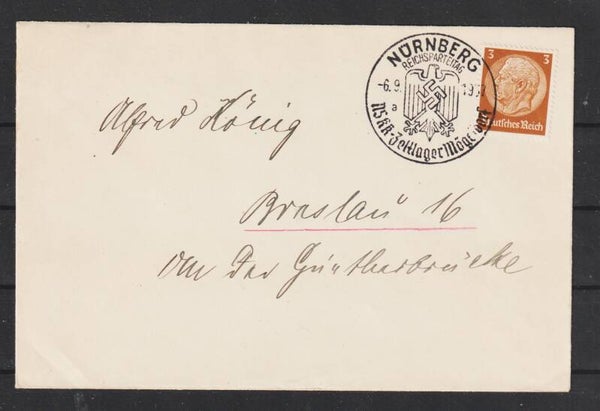 NÜRNBERG
REICHSPARTEITAG
-6.9.
a
NSKK-Zeltlager
3 3
Deutsches Reich
Alfred König
Breslau 16
An der Güntherbrücke